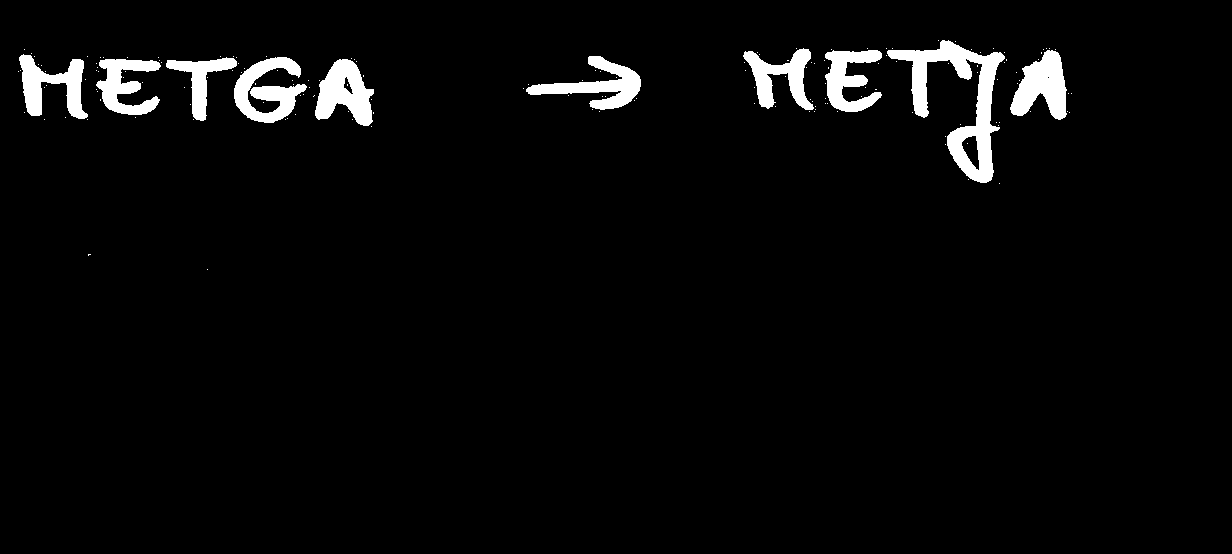 METGA → METJA